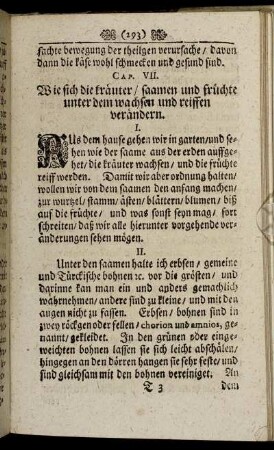 (293)
sachte bewegung der theilgen verursache / davon
dann die käse wohl schmecken und gesund sind.
CAP. VII.
Wie sich die kräuter / saamen und früchte
unter dem wachsen und reiffen
verändern.
I.
AUs dem hause gehen wir in garten / und se-
hen wie der saame aus der erden auffge-
het / die kräuter wachsen / und die früchte
reiff werden. Damit wir aber ordnung halten /
wollen wir von dem saamen den anfang machen /
zur wurtzel / stamm / ästen / blättern / blumen / biß
auf die früchte / und was sonst seyn mag / fort
schreiten / daß wir alle hierunter vorgehende ver-
änderungen sehen mögen.
II.
Unter den saamen halte ich erbsen / gemeine
und Türckische bohnen ꝛc. vor die grösten / und
darinne kan man ein und anders gemachlich
wahrnehmen / andere sind zu kleine / und mit den
augen nicht zu fassen. Erbsen / bohnen sind in
zwey röckgen oder fellen / chorion und amnios, ge-
nannt / gekleidet. In den grünen oder einge-
weichten bohnen lassen sie sich leicht abschälen /
hingegen an den dörren hangen sie sehr feste / und
sind gleichsam mit den bohnen vereiniget. An
T 3 dem